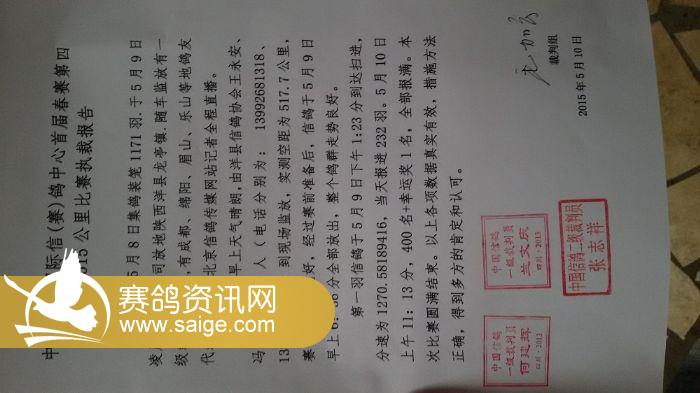 际信(赛)鸽中心首届春赛第四
公里比赛执裁报告
5月8日集鸽装笼1171羽.于5月9日
司放地陕西洋县龙亭镇.随车监放有一
,有成都、绵阳、眉山、乐山等地鸽友
北京信鸽传媒网站记者全程直播。
早上天气晴朗,由洋县信鸽协会王永安、
冯 人(电话分别为: 13992681318、
13 到现场监放,实测空距为517.7公里,
赛 好,经过赛前准备后,信鸽于5月9日
早上6: 分全部放出,整个鸽群走势良好。
第一羽信鸽于5月9日下午1:23分到达扫进,
分速为1270.58189416,当天报进232羽。5月10日
上午11:13分,400名+幸运奖1名,全部报满。本
次比赛圆满结束。以上各项数据真实有效,措施方法
正确,得到多方的肯定和认可。
裁判组
2015年5月10日
中国信鸽
一级裁判员
兰文庆
四川·2013
中国信鸽二级裁判员
张志祥
中国信鸽
一级裁判员
何延辉
四川·2013
赛鸽资讯网
www.saige.com